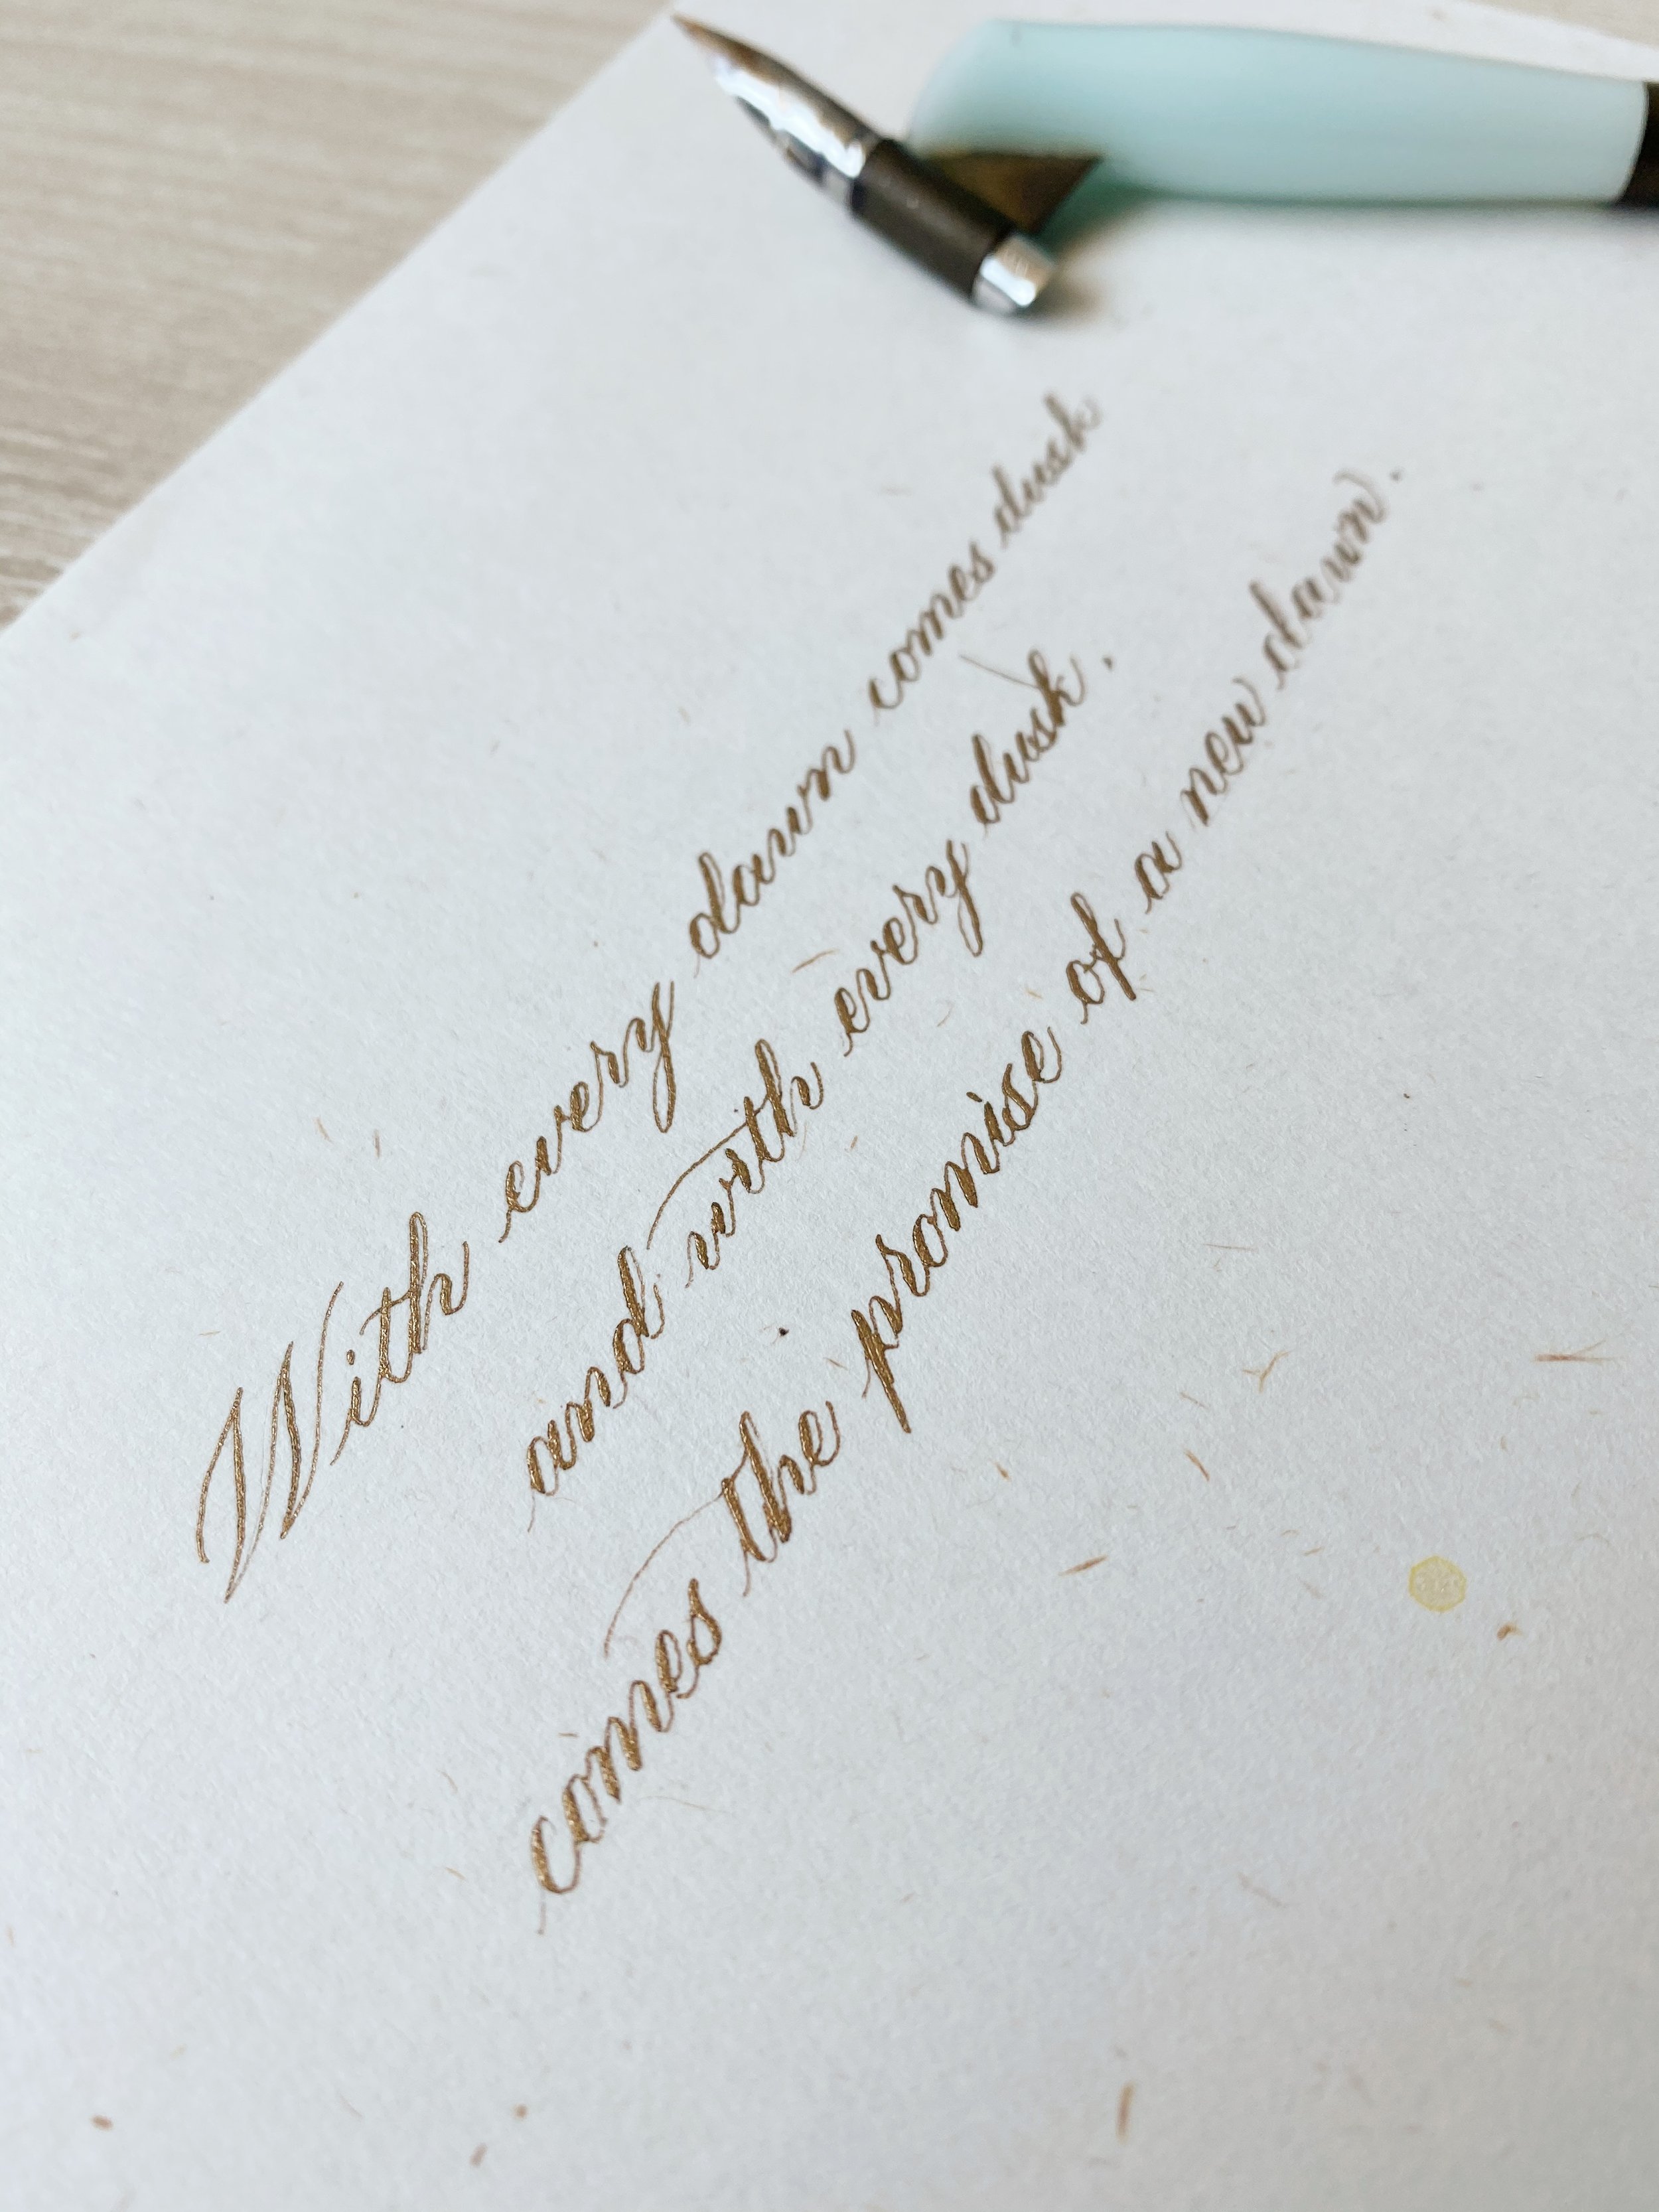 With every dawn comes dusk
and with every dusk.
comes the promise of a new dawn.